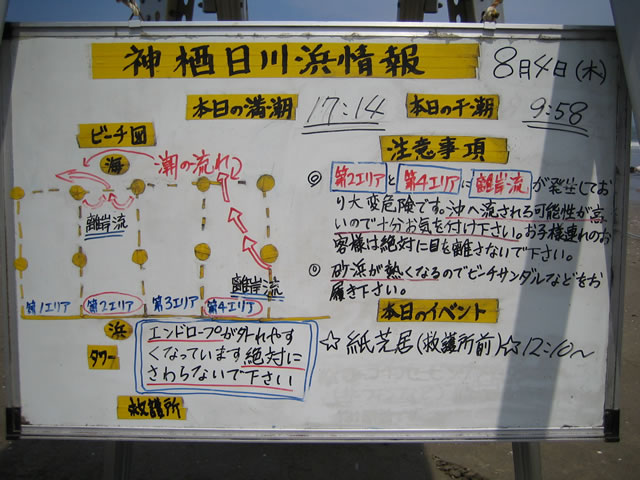 神栖日川浜情報
8月4日(木)
本日の満潮 17:14 本日の干潮 9:58
ビーチ図
海
潮の流れ
離岸流
離岸流
第1エリア 第2エリア 第3エリア 第4エリア
浜
タワー
救護所
エンドロープが外れやす
くなっています絶対に
さわらないで下さい
注意事項
◎ 第2エリアと第4エリアに離岸流が発生してお
り大変危険です。沖へ流される可能性が高
いので十分お気を付け下さい。お子様連れのお
客様は絶対に目を離さないで下さい。
◎ 砂浜が熱くなるのでビーチサンダルなどをお
履き下さい。
本日のイベント
☆紙芝居(救護所前)☆12:10~